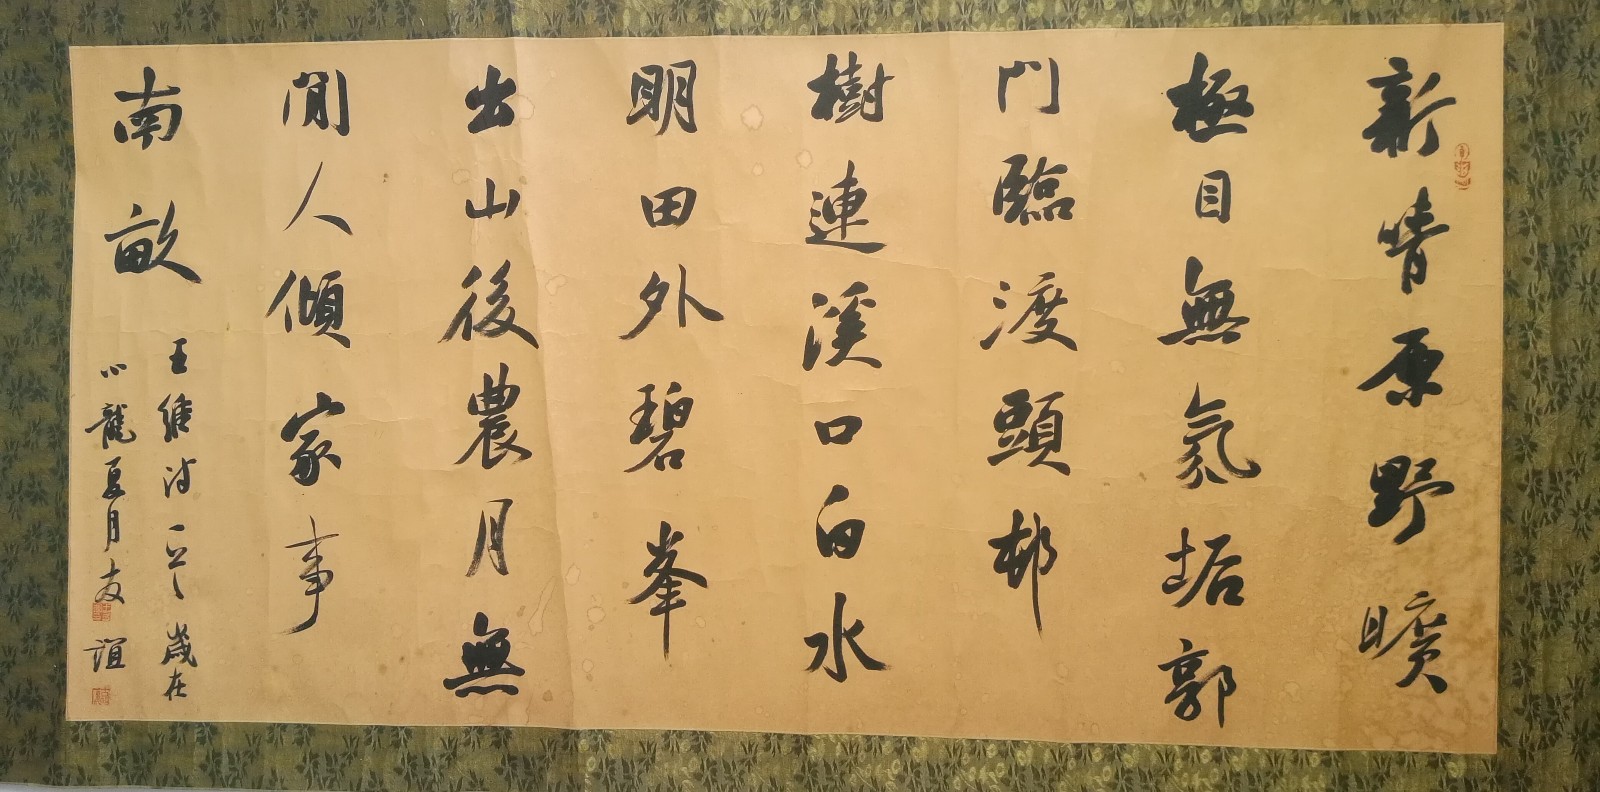 新晴原野曠
極目無氛垢郭
門臨渡頭邨
樹連溪口白水
明田外碧峯
出山後農月無
閒人傾家事
南畝
王維詩一首歲在
小龍夏月友誼